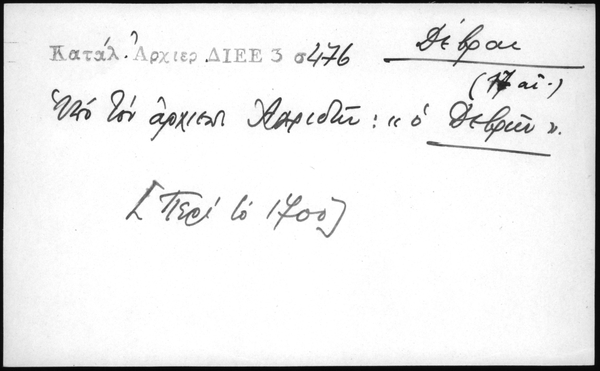 Κατάλ. Ἀρχιερ ΔΙΕΕ 3 σ476
Δέβραι
(17 αἰ.)
Ὑπό τόν ἀρχιεπ Ἀχριδῶν : "ὁ Δεβρῶν".
[Περί τό 1700]